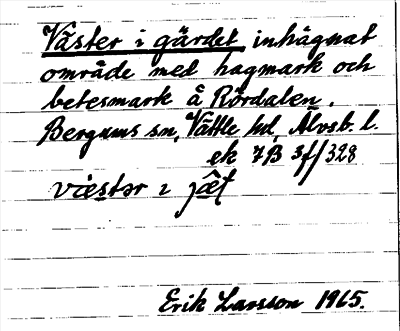 Väster i gärdet inhägnat
område med hagmark och
betesmark å Rördalen.
Bergums sn, Vättle hd, Älvsb. l.
ek 7B 3f/328
Erik Larsson 1965.